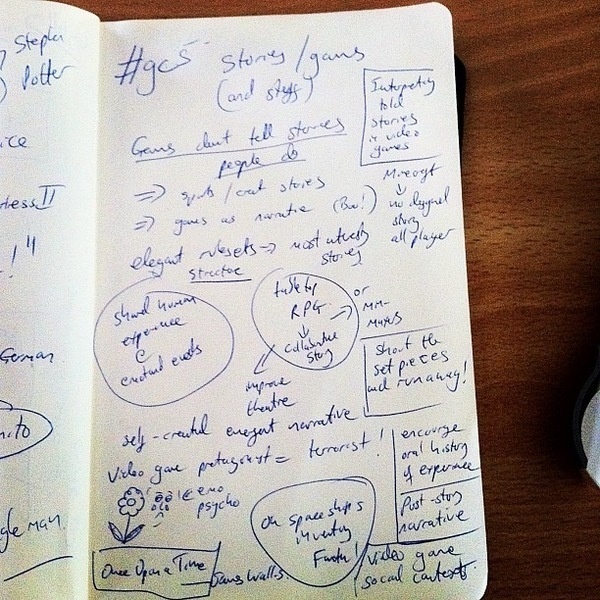 Stephen
Potter
ice
ness II
German
gle man
#gc5 Stories/games
(and stuff)
Games don't tell stories
people do
Interpreting
told
stories
in video
games
=> sports/oral stories
=> games as narrative (Boo!)
elegant rulesets => most
stories
structure
Minecraft
↓
no designed
story
all player
shared human
experience
@
emotional events
tabletop
RPG
↓
collaborative
story
or
MM-
MUDs
improv
theatre
Shoot the
set pieces
and run away!
self-created emergent narrative
video game protagonist = terrorist!
emo
psycho
encourage
oral history
of experience
Post-story
narrative
Oh spaceships
inventing
Once Upon a Time
video game
social contexts